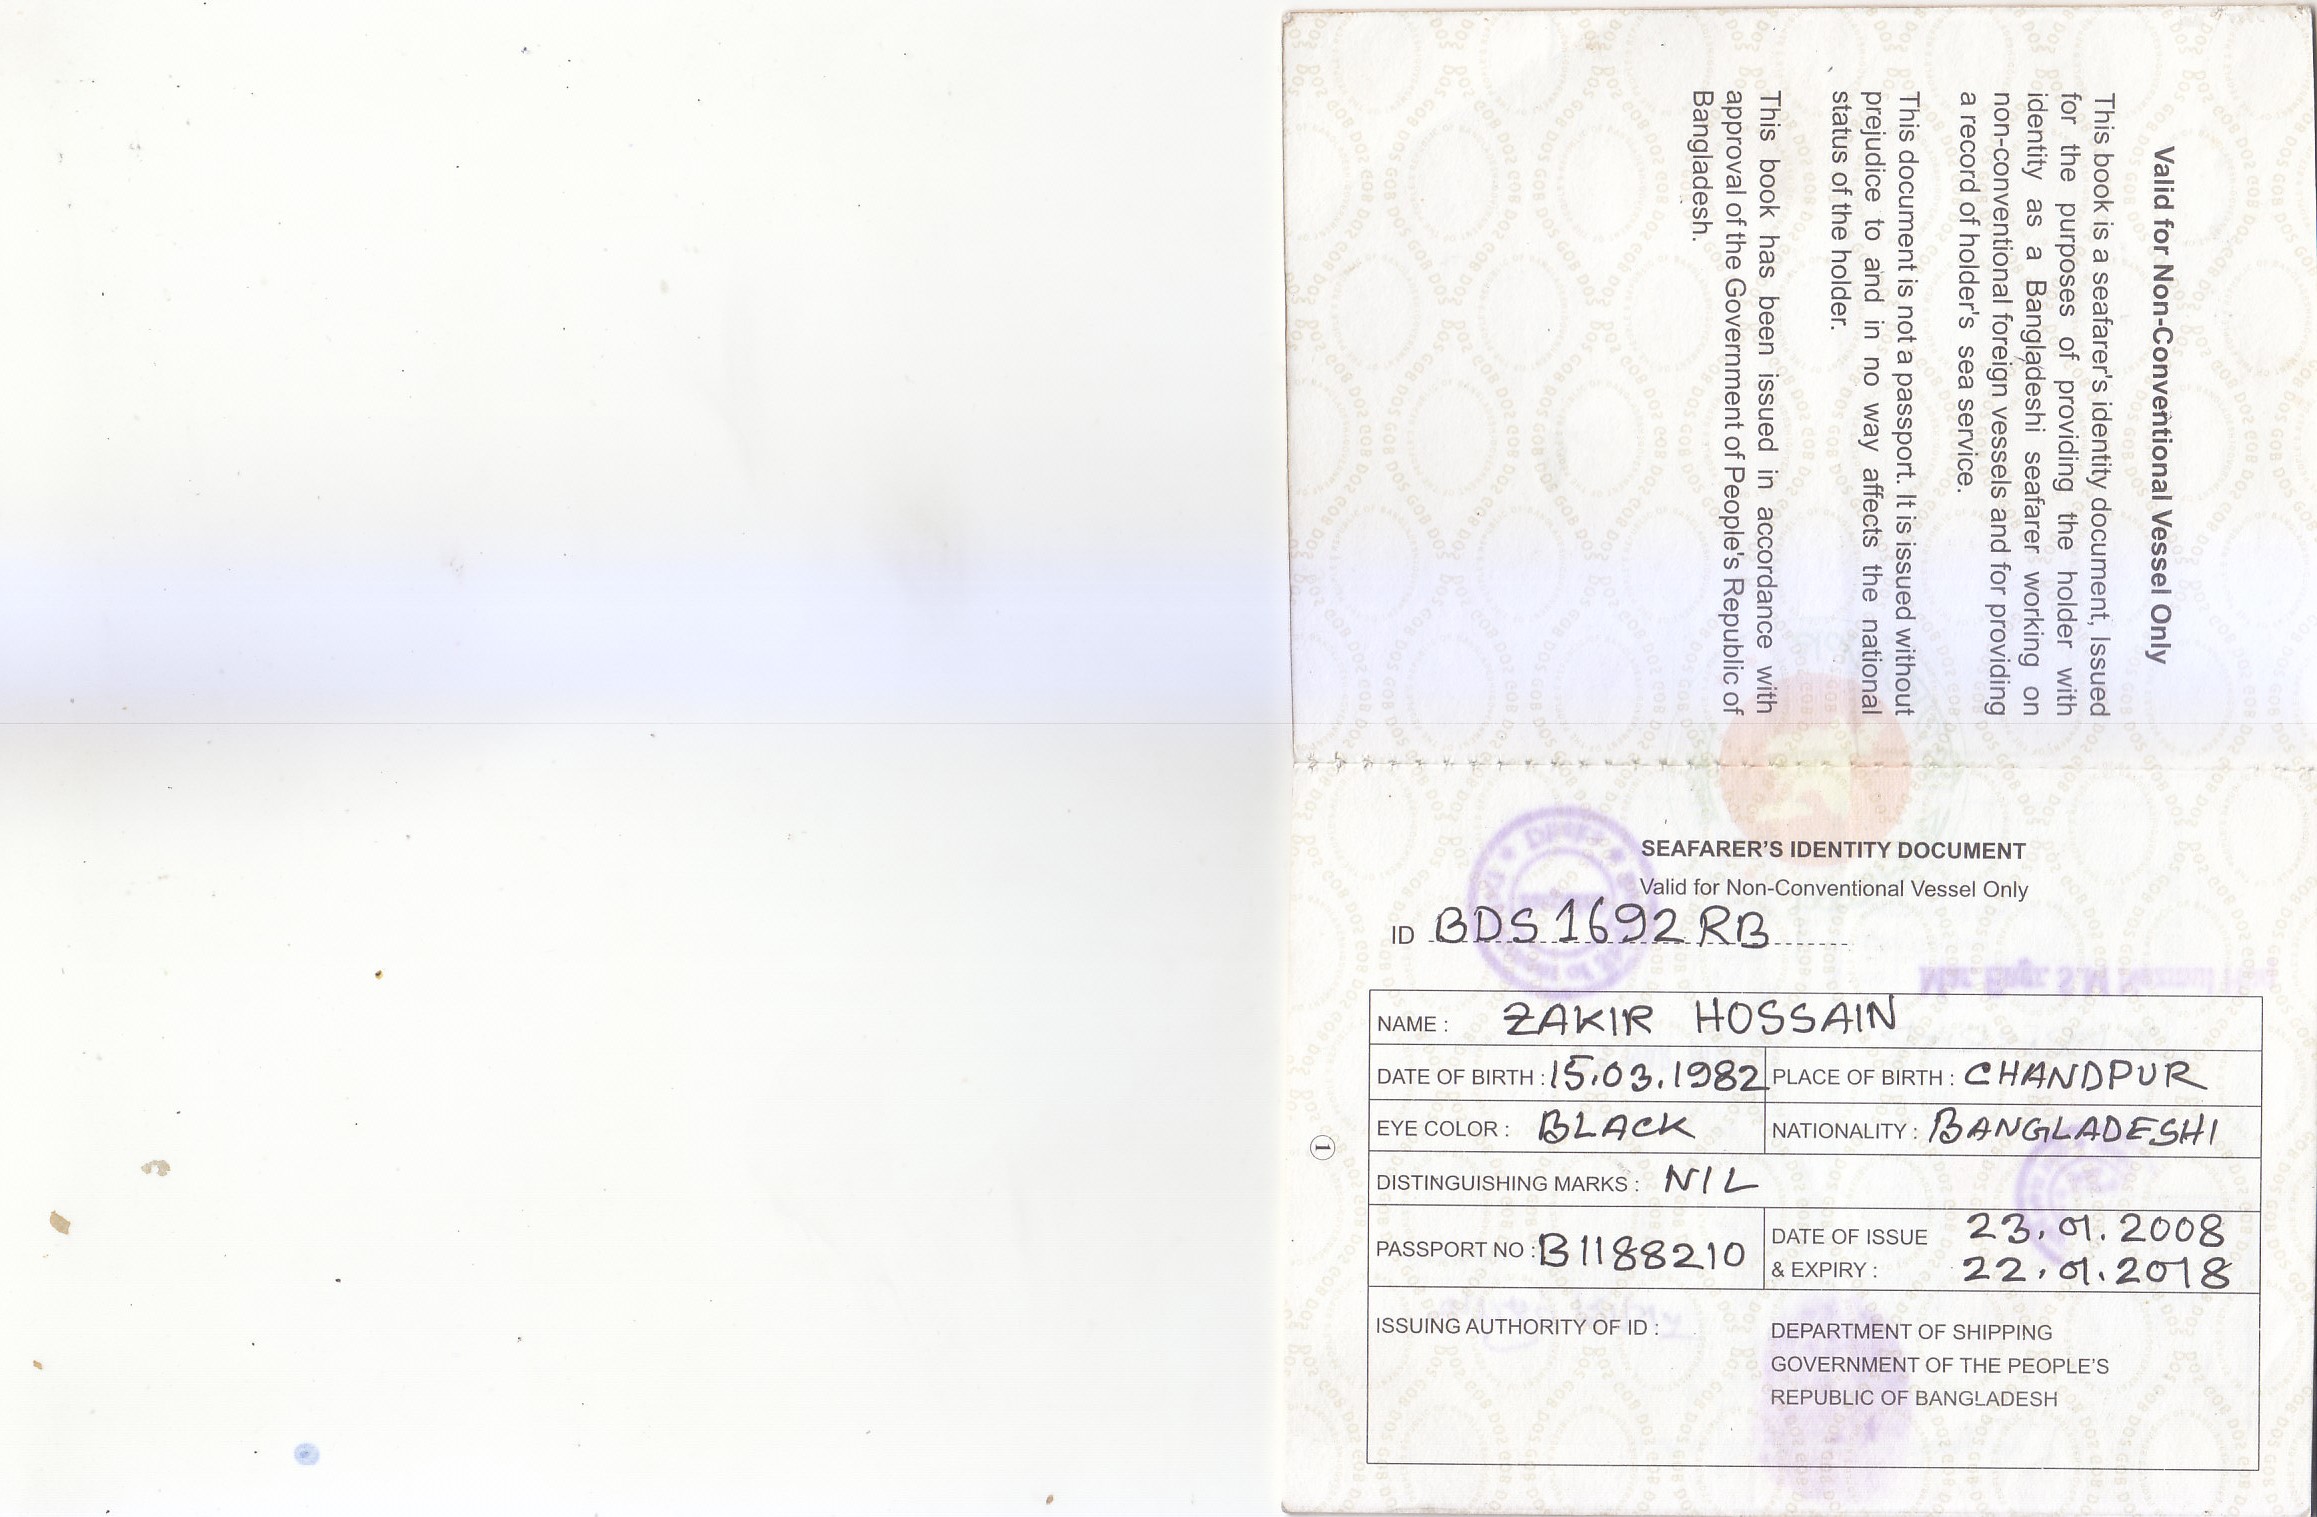 Valid for Non-Conventional Vessel Only
This book is a seafarer's identity document, Issued
for the purposes of providing the holder with
identity as a Bangladeshi seafarer working on
non-conventional foreign vessels and for providing
a record of holder's sea service.
This document is not a passport. It is issued without
prejudice to and in no way affects the national
status of the holder.
This book has been issued in accordance with
approval of the Government of People's Republic of
Bangladesh.
SEAFARER'S IDENTITY DOCUMENT
Valid for Non-Conventional Vessel Only
ID BDS 1692 RB
NAME : ZAKIR HOSSAIN
DATE OF BIRTH : 15.03.1982 PLACE OF BIRTH : CHANDPUR
EYE COLOR : BLACK NATIONALITY : BANGLADESHI
DISTINGUISHING MARKS : NIL
PASSPORT NO : B1188210 DATE OF ISSUE 23.01.2008
& EXPIRY : 22.01.2018
ISSUING AUTHORITY OF ID : DEPARTMENT OF SHIPPING
GOVERNMENT OF THE PEOPLE'S
REPUBLIC OF BANGLADESH
1